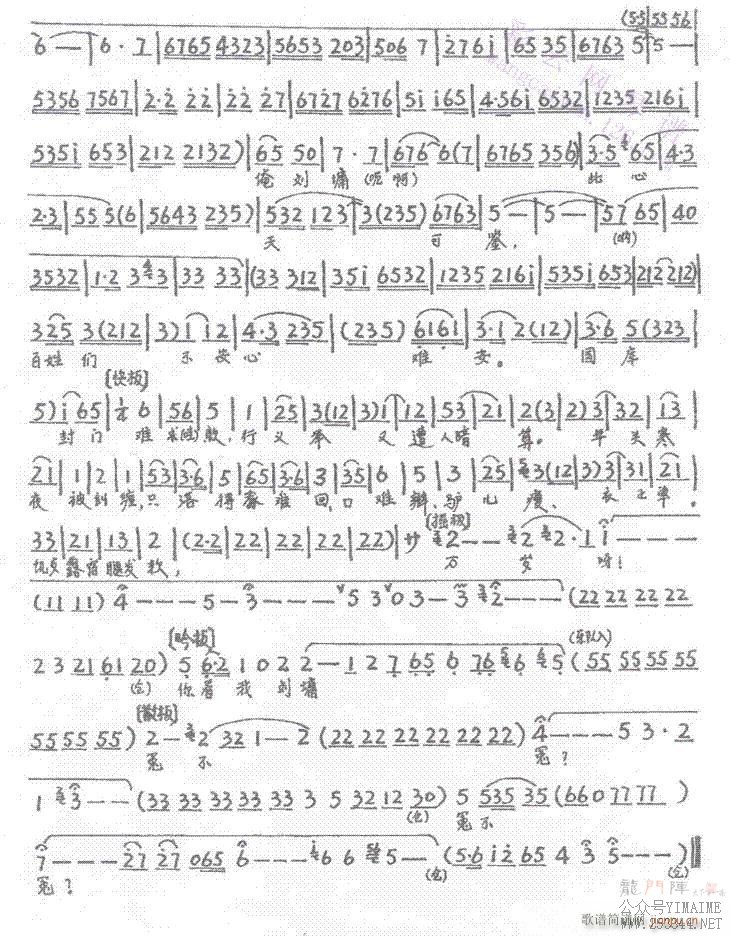 (55 | 55 56 |
6 — | 6· 7 | 6765 4323 | 5653 203 | 506 7 | 276i | 6535 | 6763 5 | 5 — |
5356 7567 | 2·2 22 | 22 27 | 6727 6276 | 5i i65 | 4·56i 6532 | 1235 216i |
535i 653 | 212 2132) | 65 50 | 7·7 | 676 6(7 | 6765 356) | 3·5 65 | 4·3
俺刘墉(呃啊) 此心
2·3 | 55 5(6 | 5643 235) | 532 123 | 3(235) 6763 | 5 — | 5 — | 57 65 | 40
天 可 鉴,
3532 | 1·2 3 3 | 33 33 | (33 312 | 35i 6532 | 1235 216i | 535i 653 | 212 212) |
325 3(212 | 3) i i2 | 4·3 235 | (235) 6161 | 3·1 2(12) | 3·6 5(323 |
百姓们 不安心 难安。 国库
[快板]
5) i 65 | 1/4 6 | 56 | 5 | 1 | 25 | 3(12 | 3)1 | 12 | 53 | 21 | 2(3 | 2)3 | 32 | 13 |
封门 难求 救,行义举 又遭人暗算。
21 | 1 | 2 | 1 | 53 | 3·6 | 5 | 65 | 3·6 | 3 | 35 | 6 | 5 | 3 | 25 | 3(12 | 3)3 | 31 | 21 |
夜被纠缠,只落得 难回,口难辩、驴儿瘦、衣 单。
33 | 21 | 13 | 2 | (2·2 | 22 | 22 | 22 | 22) | サ 2 — — 2 2·1 i — — —
露宿腿发软, 万 岁 呀!
(11 11) 4 — — — 5 — 3 — — — 5 3 0 3 — 3 2 — — — (22 22 22 22
2 3 21 61 20) 5 6·2 1 0 2 2 2 — 1 2 7 65 6 76 6 5 (55 55 55 55
(仓) 你看我刘墉
[散板]
55 55 55) 2 — 2 32 1 — 2 (22 22 22 22 22 22) 4 — — — 5 3·2
冤不 冤?
1 3 — — (33 33 33 33 33 3 5 32 12 30) 5 535 35 (660 77 77 )
(仓) 冤不
7 — — — 27 27 065 6 — — — 6 6 5 — (5·6 i2 65 4 3 5 — — —)
冤? (仓) (仓)
龍門陣
公众号YIMAIME
歌谱简谱网 jianpu.cn